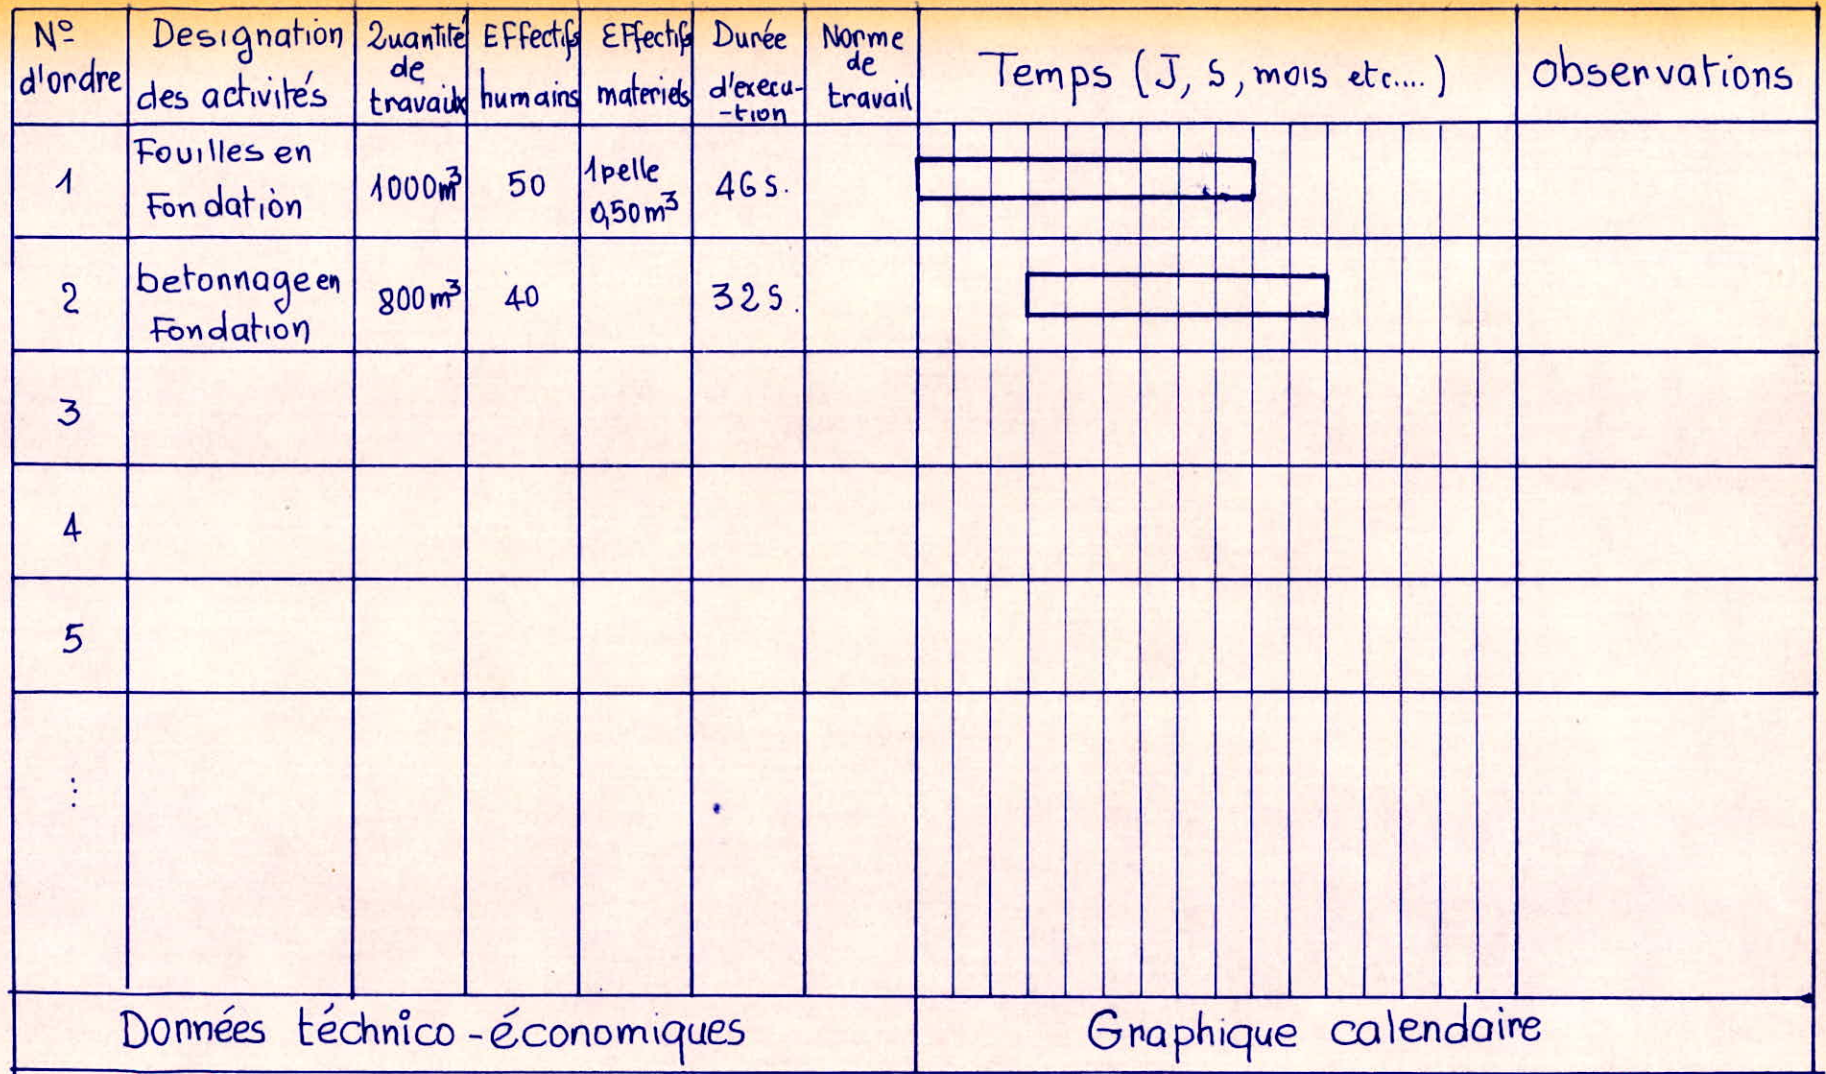 Nº
d'ordre
Designation
des activités
Quantité
de
travaux
Effectifs
humains
Effectifs
materiels
Durée
d'execu-
-tion
Norme
de
travail
Temps (J, S, mois etc....)
Observations
1
Fouilles en
Fondation
1000m³
50
1pelle
0,50m³
46 s.
2
betonnage en
Fondation
800m³
40
32 s.
3
4
5
⋮
Données téchnico-économiques
Graphique calendaire